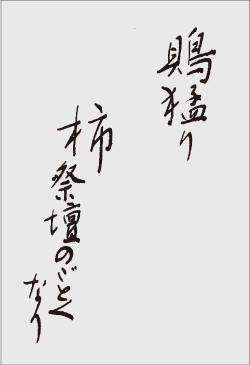 鵙猛り
柿祭壇のごとく
なり